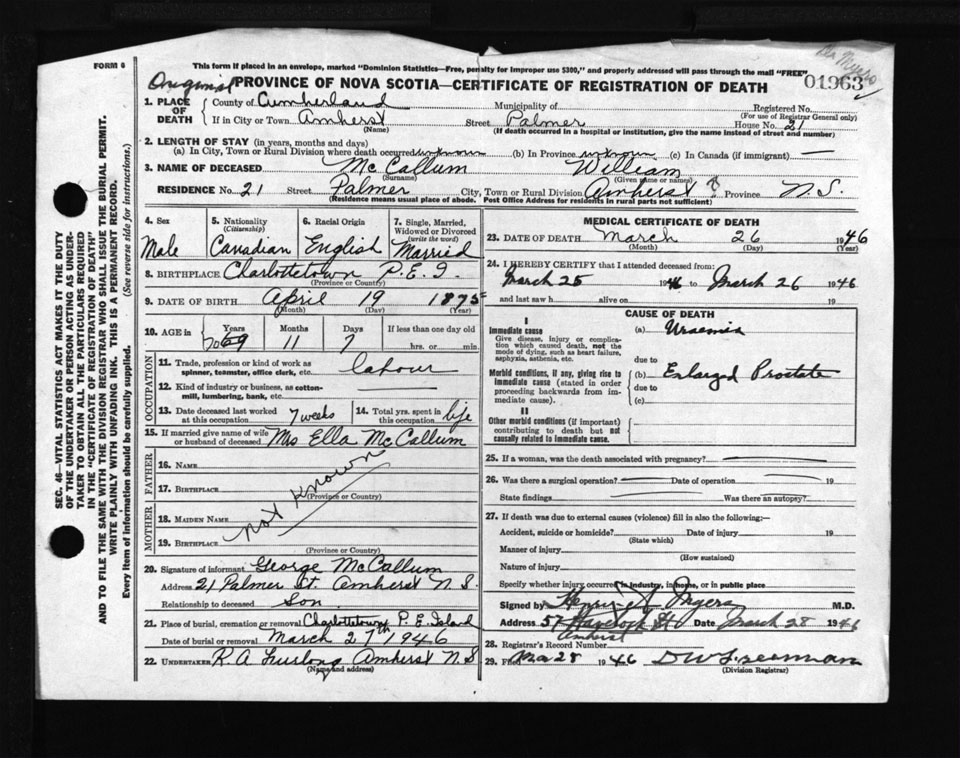 This form if placed in an envelope, marked "Dominion Statistics—Free, penalty for improper use $300," and properly addressed will pass through the mail "FREE"
FORM 6
Original PROVINCE OF NOVA SCOTIA—CERTIFICATE OF REGISTRATION OF DEATH
01963
1. PLACE OF DEATH { County of Cumberland Municipality of Registered No. (For use of Registrar General only)
If in City or Town Amherst (Name) Street Palmer House No. 21
(If death occurred in a hospital or institution, give the name instead of street and number)
2. LENGTH OF STAY (in years, months and days)
(a) In City, Town or Rural Division where death occurred unknown (b) In Province unknown (c) In Canada (if immigrant) —
3. NAME OF DECEASED McCallum (Surname) William (Given name or names)
RESIDENCE No. 21 Street Palmer City, Town or Rural Division Amherst Province N.S.
(Residence means usual place of abode. Post Office Address for residents in rural parts not sufficient)
4. Sex Male
5. Nationality (Citizenship) Canadian
6. Racial Origin English
7. Single, Married, Widowed or Divorced (write the word) Married
8. BIRTHPLACE Charlottetown P.E.I.
(Province or Country)
9. DATE OF BIRTH April 19 1875
(Month) (Day) (Year)
10. AGE in { Years 70 69 Months 11 Days 7 If less than one day old hrs. or min.
OCCUPATION
11. Trade, profession or kind of work as spinner, teamster, office clerk, etc. labour
12. Kind of industry or business, as cotton-mill, lumbering, bank, etc.
13. Date deceased last worked at this occupation 7 weeks
14. Total yrs. spent in this occupation life
15. If married give name of wife or husband of deceased Mrs Ella McCallum
FATHER
16. NAME
17. BIRTHPLACE
(Province or Country)
not known
MOTHER
18. MAIDEN NAME
19. BIRTHPLACE
(Province or Country)
20. Signature of informant George McCallum
Address 21 Palmer St. Amherst N.S.
Relationship to deceased Son
21. Place of burial, cremation or removal Charlottetown P.E.Island
Date of burial or removal March 27th 1946
22. UNDERTAKER R.A Furlong Amherst N.S
(Name and address)
MEDICAL CERTIFICATE OF DEATH
23. DATE OF DEATH March 26 1946
(Month) (Day) (Year)
24. I HEREBY CERTIFY that I attended deceased from:
March 25 1946 to March 26 1946
and last saw h alive on 19
CAUSE OF DEATH
I
Immediate cause
Give disease, injury or complication which caused death, not the mode of dying, such as heart failure, asphyxia, asthenia, etc.
(a) Uraemia
due to
Morbid conditions, if any, giving rise to immediate cause (stated in order proceeding backwards from immediate cause).
(b) Enlarged Prostate
due to
(c)
II
Other morbid conditions (if important) contributing to death but not causally related to immediate cause.
25. If a woman, was the death associated with pregnancy?
26. Was there a surgical operation? Date of operation 19
State findings Was there an autopsy?
27. If death was due to external causes (violence) fill in also the following:—
Accident, suicide or homicide? (State which) Date of injury 19
Manner of injury (How sustained)
Nature of injury
Specify whether injury occurred in industry, in home, or in public place
Signed by Myers M.D.
Address 57 Havelock St Amherst Date March 28 1946
28. Registrar's Record Number
29. Filed Mar 28 1946
(Division Registrar)
SEC. 46—VITAL STATISTICS ACT MAKES IT THE DUTY OF THE UNDERTAKER OR PERSON ACTING AS UNDERTAKER TO OBTAIN ALL THE PARTICULARS REQUIRED IN THE "CERTIFICATE OF REGISTRATION OF DEATH"
AND TO FILE THE SAME WITH THE DIVISION REGISTRAR WHO SHALL ISSUE THE BURIAL PERMIT.
WRITE PLAINLY WITH UNFADING INK. THIS IS A PERMANENT RECORD.
Every item of information should be carefully supplied. (See reverse side for instructions.)